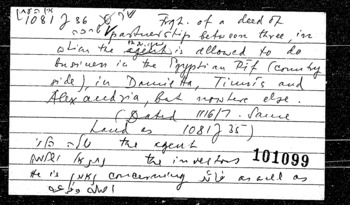 1081 J 36 Frgt. of a deed of
partnership between three, in
which the agent is allowed to do
business in the Egyptian Rif (country
side), in Damietta, Tinnis and
Alexandria, but nowhere else.
(Dated 1116/7. Same
hand as 1081 J 35)
the agent
the investors 101099
He is concerning as well as